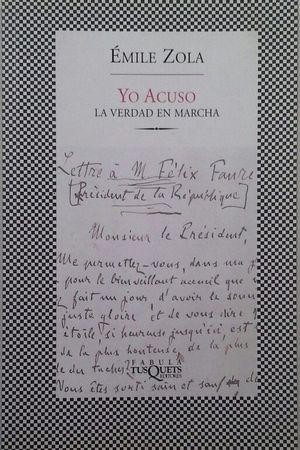 ÉMILE ZOLA
YO ACUSO
LA VERDAD EN MARCHA
Lettre à M. Félix Faure
[Président de la République]
Monsieur le Président,
Me permettez-vous, dans ma
pour le bienveillant accueil que
fait un jour, d'avoir le
juste gloire et de vous dire
étoile, si heureuse jusqu'ici, est
de la plus honteuse, de la plus
des taches?
FÁBULA
TUSQUETS
EDITORES
Vous êtes sorti sain et sauf des